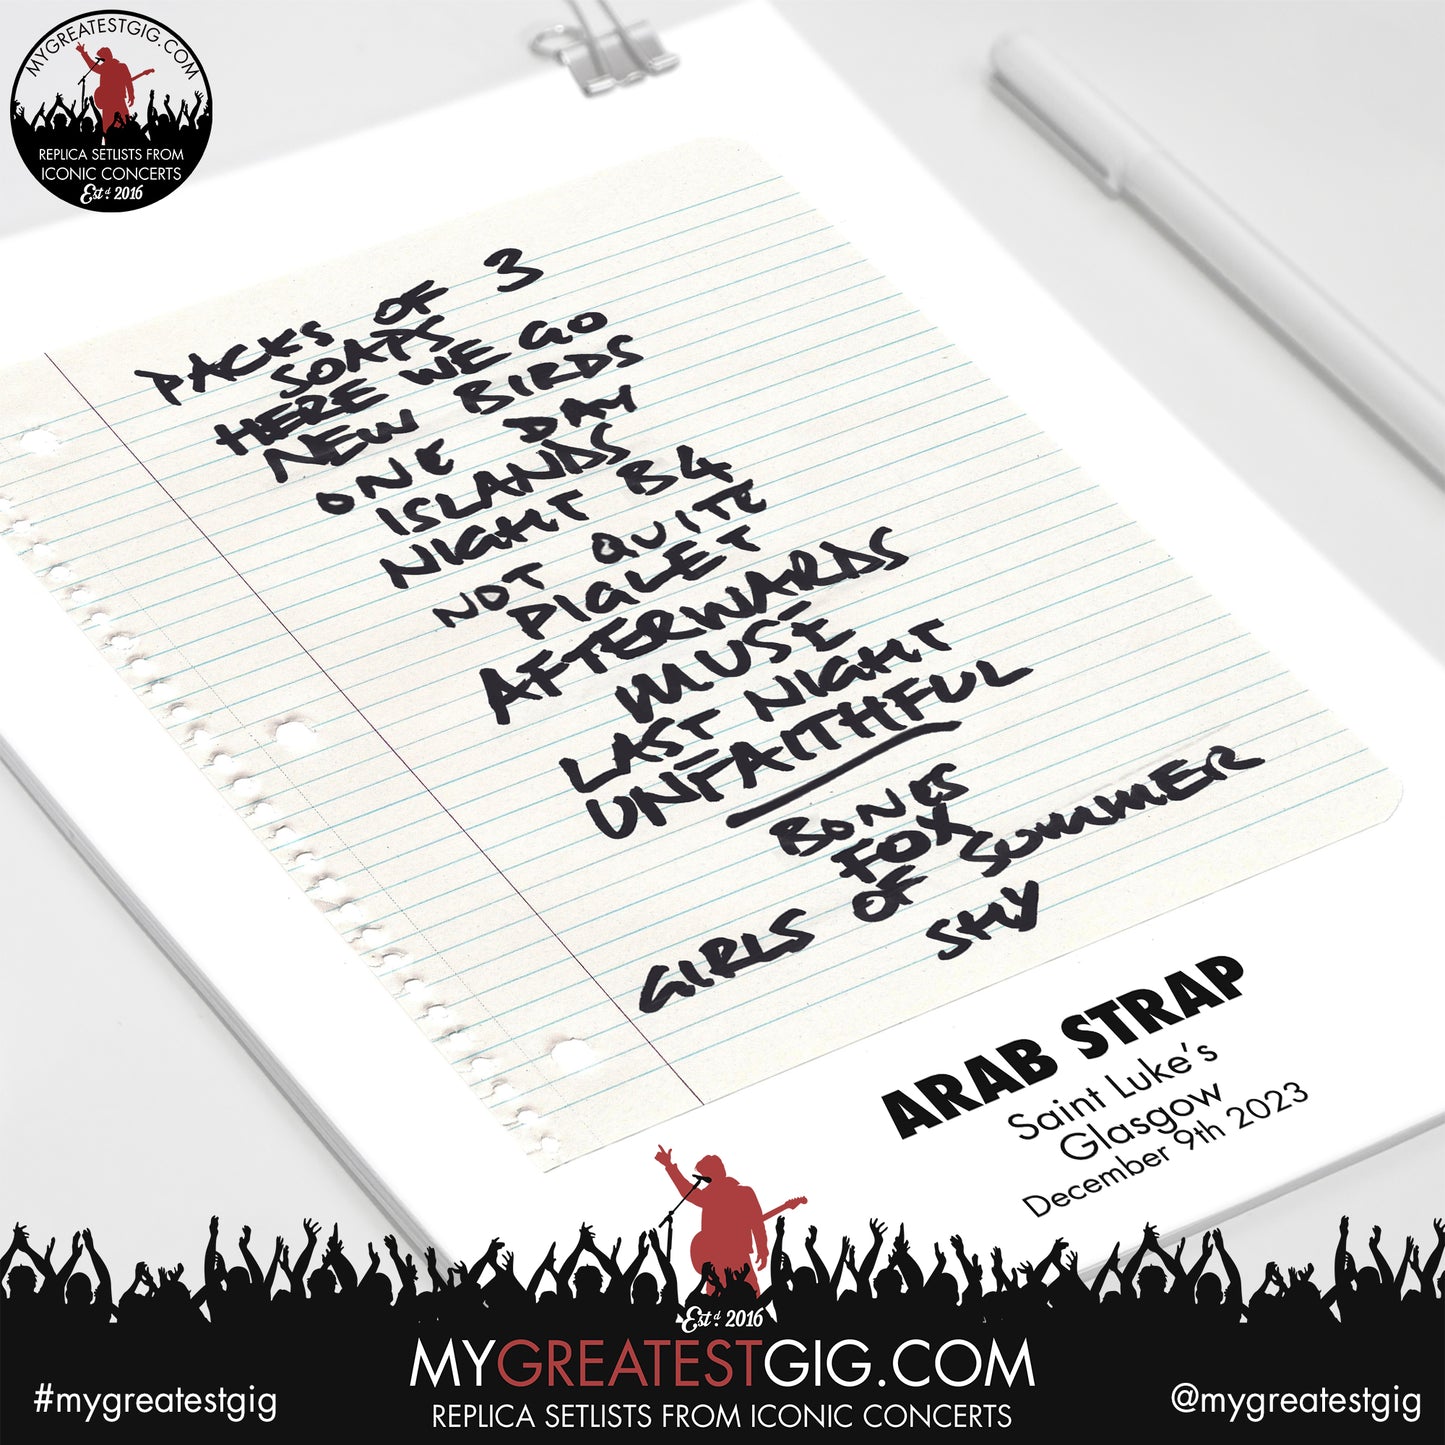 MYGREATESTGIG.COM
REPLICA SETLISTS FROM
ICONIC CONCERTS
Estd. 2016
PACKS OF 3
SOAPS
HERE WE GO
NEW BIRDS
ONE DAY
ISLANDS
NIGHT B4
NOT QUITE
PIGLET
AFTERWARDS
MUSE
LAST NIGHT
UNFAITHFUL
BONES
FOX
GIRLS OF SUMMER
SHY
ARAB STRAP
Saint Luke's
Glasgow
December 9th 2023
Estd. 2016
MYGREATESTGIG.COM
#mygreatestgig
REPLICA SETLISTS FROM ICONIC CONCERTS
@mygreatestgig